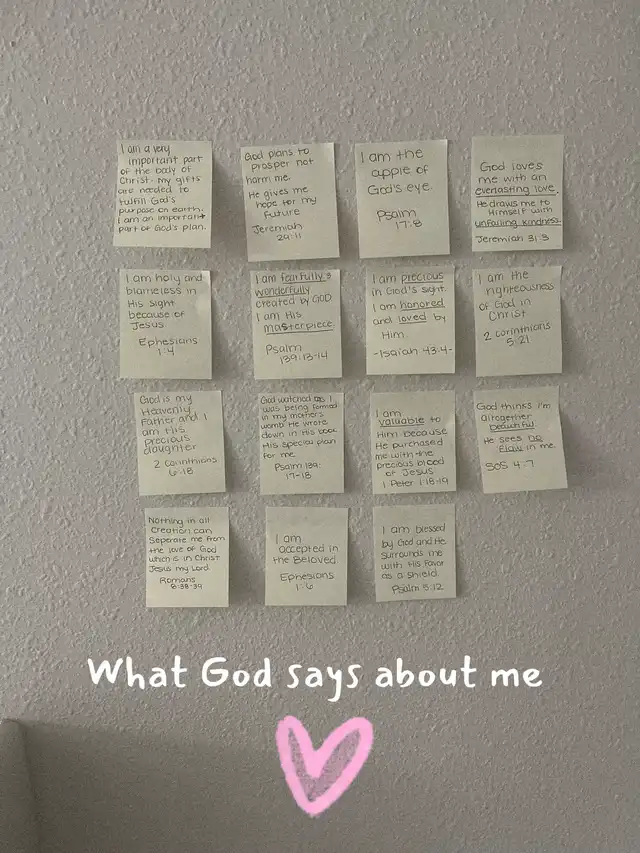 I am a very
important part
of the body of
Christ. my gifts
are needed to
fulfill God's
purpose on earth.
I am an important
part of God's plan.
God plans to
prosper not
harm me.
He gives me
hope for my
future
Jeremiah
29:11
I am the
apple of
God's eye.
Psalm
17:8
God loves
me with an
everlasting love.
He draws me to
Himself with
unfailing kindness.
Jeremiah 31:3
I am holy and
blameless in
His sight
because of
Jesus
Ephesians
1:4
I am fearfully &
wonderfully
created by GOD.
I am His
masterpiece.
Psalm
139:13-14
I am precious
in God's sight.
I am honored
and loved by
Him.
-Isaiah 43:4-
I am the
righteousness
of God in
Christ
2 Corinthians
5:21
God is my
Heavenly
Father and I
am His
precious
daughter
2 Corinthians
6:18
God watched as I
was being formed
in my mother's
womb. He wrote
down in His book
His special plan
for me.
Psalm 139:
17-18
I am
valuable to
Him because
He purchased
me with the
precious blood
of Jesus
1 Peter 1:18-19
God thinks I'm
altogether
beautiful
He sees no
flaw in me.
SOS 4:7
Nothing in all
Creation can
Seperate me from
the love of God
which is in Christ
Jesus my Lord.
Romans
8:38-39
I am
accepted in
the Beloved
Ephesians
1:6
I am blessed
by God and He
surrounds me
with His favor
as a shield.
Psalm 5:12
What God says about me